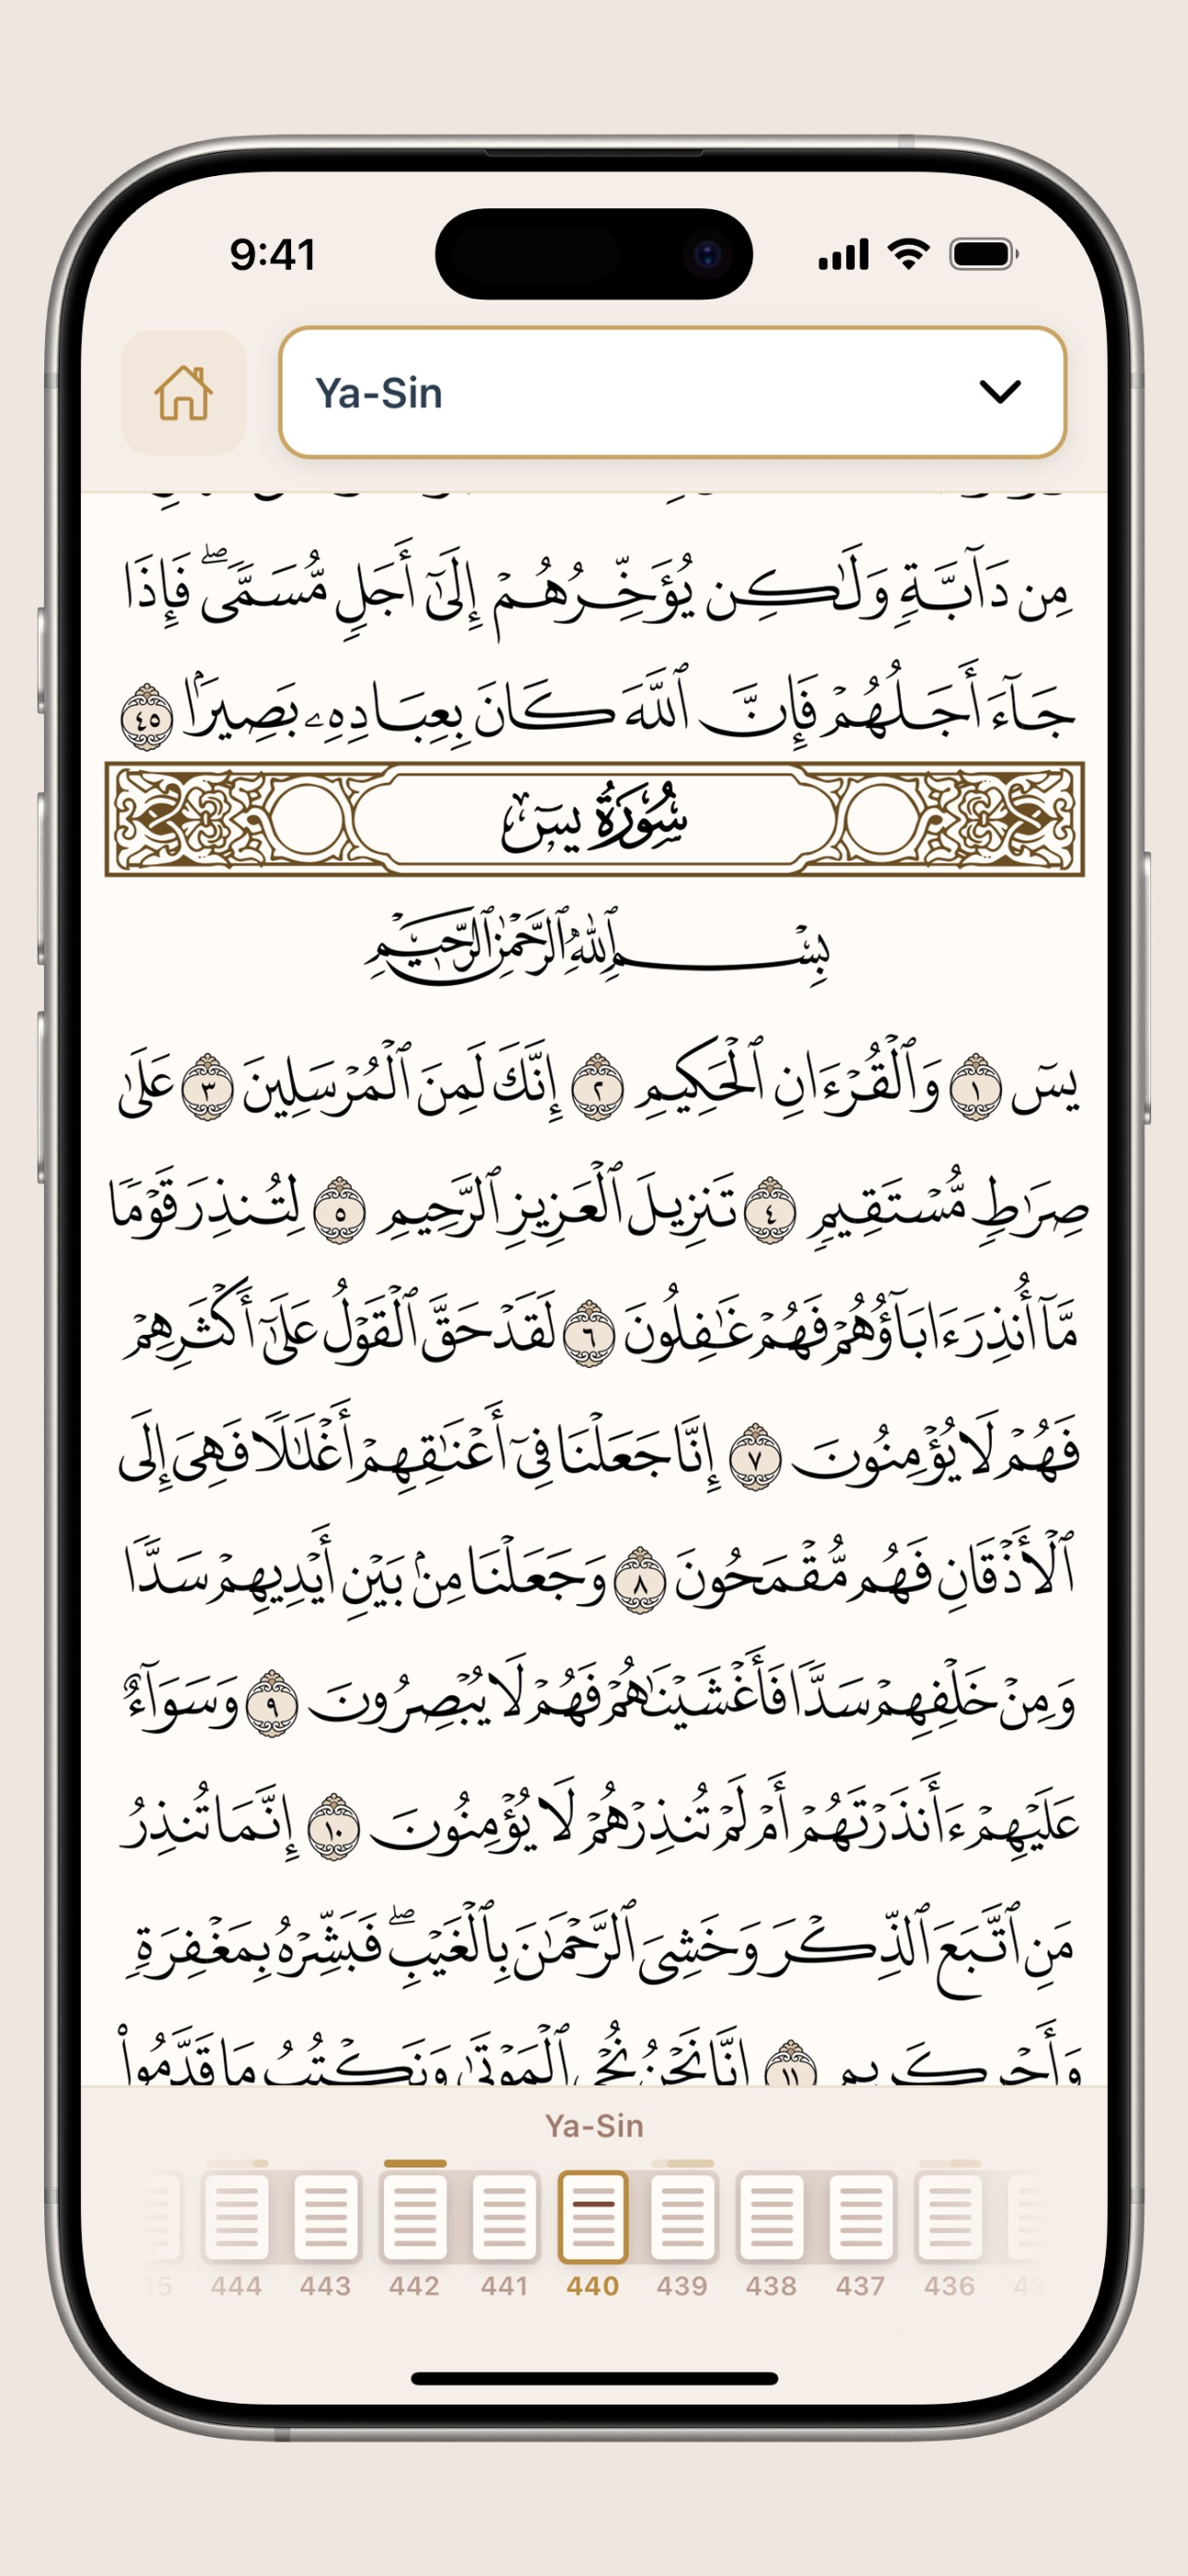 9:41
Ya-Sin
مِن دَآبَّةٍ وَلَٰكِن يُؤَخِّرُهُمْ إِلَىٰٓ أَجَلٍ مُّسَمًّى ۖ فَإِذَا
جَآءَ أَجَلُهُمْ فَإِنَّ ٱللَّهَ كَانَ بِعِبَادِهِۦ بَصِيرًۢا ٤٥
سُورَةُ يسٓ
بِسْمِ ٱللَّهِ ٱلرَّحْمَٰنِ ٱلرَّحِيمِ
يسٓ ١ وَٱلْقُرْءَانِ ٱلْحَكِيمِ ٢ إِنَّكَ لَمِنَ ٱلْمُرْسَلِينَ ٣ عَلَىٰ
صِرَٰطٍ مُّسْتَقِيمٍ ٤ تَنزِيلَ ٱلْعَزِيزِ ٱلرَّحِيمِ ٥ لِتُنذِرَ قَوْمًا
مَّآ أُنذِرَ ءَابَآؤُهُمْ فَهُمْ غَٰفِلُونَ ٦ لَقَدْ حَقَّ ٱلْقَوْلُ عَلَىٰٓ أَكْثَرِهِمْ
فَهُمْ لَا يُؤْمِنُونَ ٧ إِنَّا جَعَلْنَا فِىٓ أَعْنَٰقِهِمْ أَغْلَٰلًا فَهِىَ إِلَى
ٱلْأَذْقَانِ فَهُم مُّقْمَحُونَ ٨ وَجَعَلْنَا مِنۢ بَيْنِ أَيْدِيهِمْ سَدًّا
وَمِنْ خَلْفِهِمْ سَدًّا فَأَغْشَيْنَٰهُمْ فَهُمْ لَا يُبْصِرُونَ ٩ وَسَوَآءٌ
عَلَيْهِمْ ءَأَنذَرْتَهُمْ أَمْ لَمْ تُنذِرْهُمْ لَا يُؤْمِنُونَ ١٠ إِنَّمَا تُنذِرُ
مَنِ ٱتَّبَعَ ٱلذِّكْرَ وَخَشِىَ ٱلرَّحْمَٰنَ بِٱلْغَيْبِ ۖ فَبَشِّرْهُ بِمَغْفِرَةٍ
وَأَجْرٍ كَرِيمٍ ١١ إِنَّا نَحْنُ نُحْىِ ٱلْمَوْتَىٰ وَنَكْتُبُ مَا قَدَّمُوا۟
Ya-Sin
444 443 442 441 440 439 438 437 436